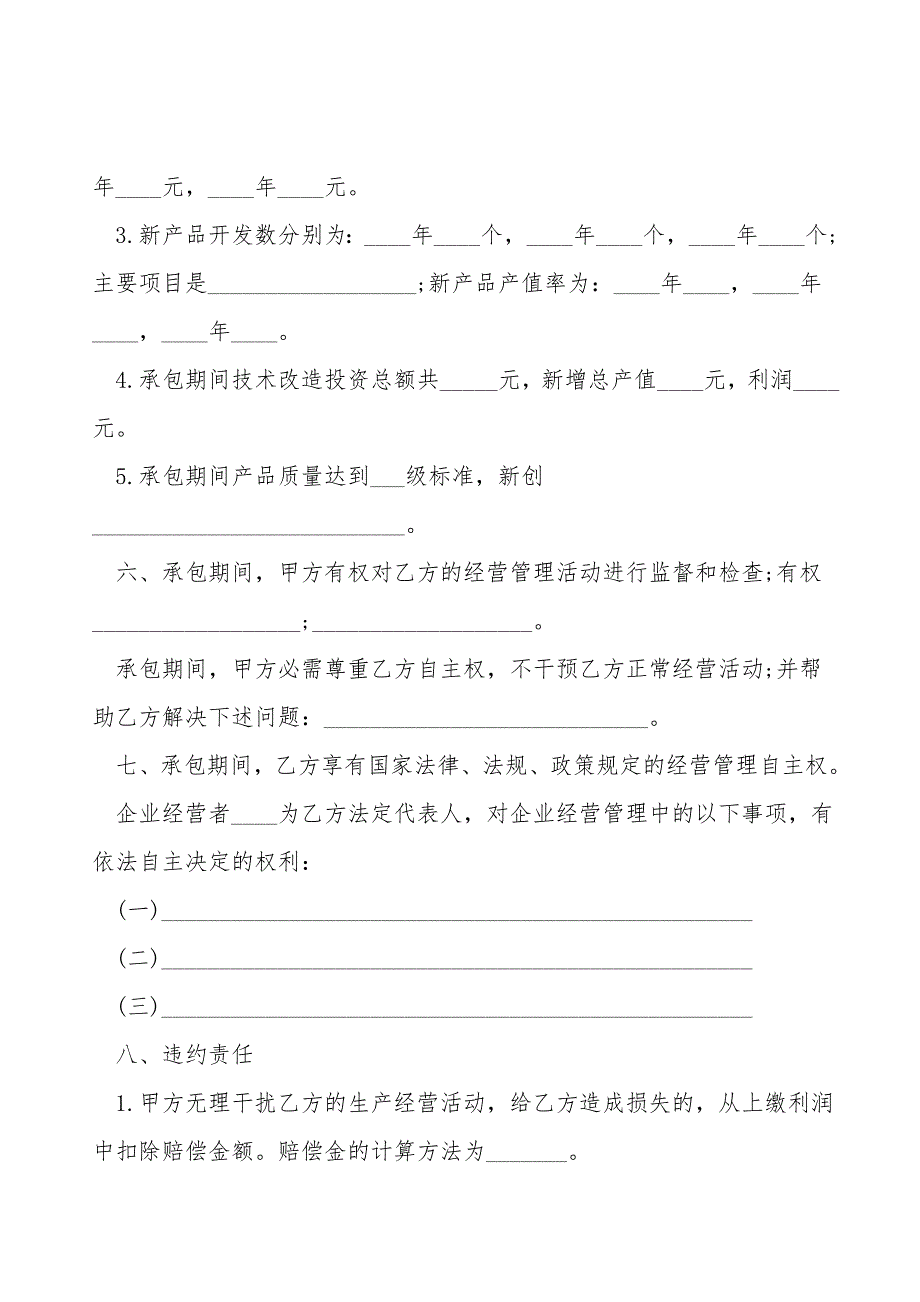 年____元，____年____元。
3.新产品开发数分别为：____年____个，____年____个，____年____个;
主要项目是__________________;新产品产值率为：____年____，____年
____，____年____。
4.承包期间技术改造投资总额共_____元，新增总产值____元，利润____
元。
5.承包期间产品质量达到___级标准，新创
___________________________。
六、承包期间，甲方有权对乙方的经营管理活动进行监督和检查;有权
__________________;___________________。
承包期间，甲方必需尊重乙方自主权，不干预乙方正常经营活动;并帮
助乙方解决下述问题：____________________________。
七、承包期间，乙方享有国家法律、法规、政策规定的经营管理自主权。
企业经营者____为乙方法定代表人，对企业经营管理中的以下事项，有
依法自主决定的权利：
(一)___________________________________________________
(二)___________________________________________________
(三)___________________________________________________
八、违约责任
1.甲方无理干扰乙方的生产经营活动，给乙方造成损失的，从上缴利润
中扣除赔偿金额。赔偿金的计算方法为_______。